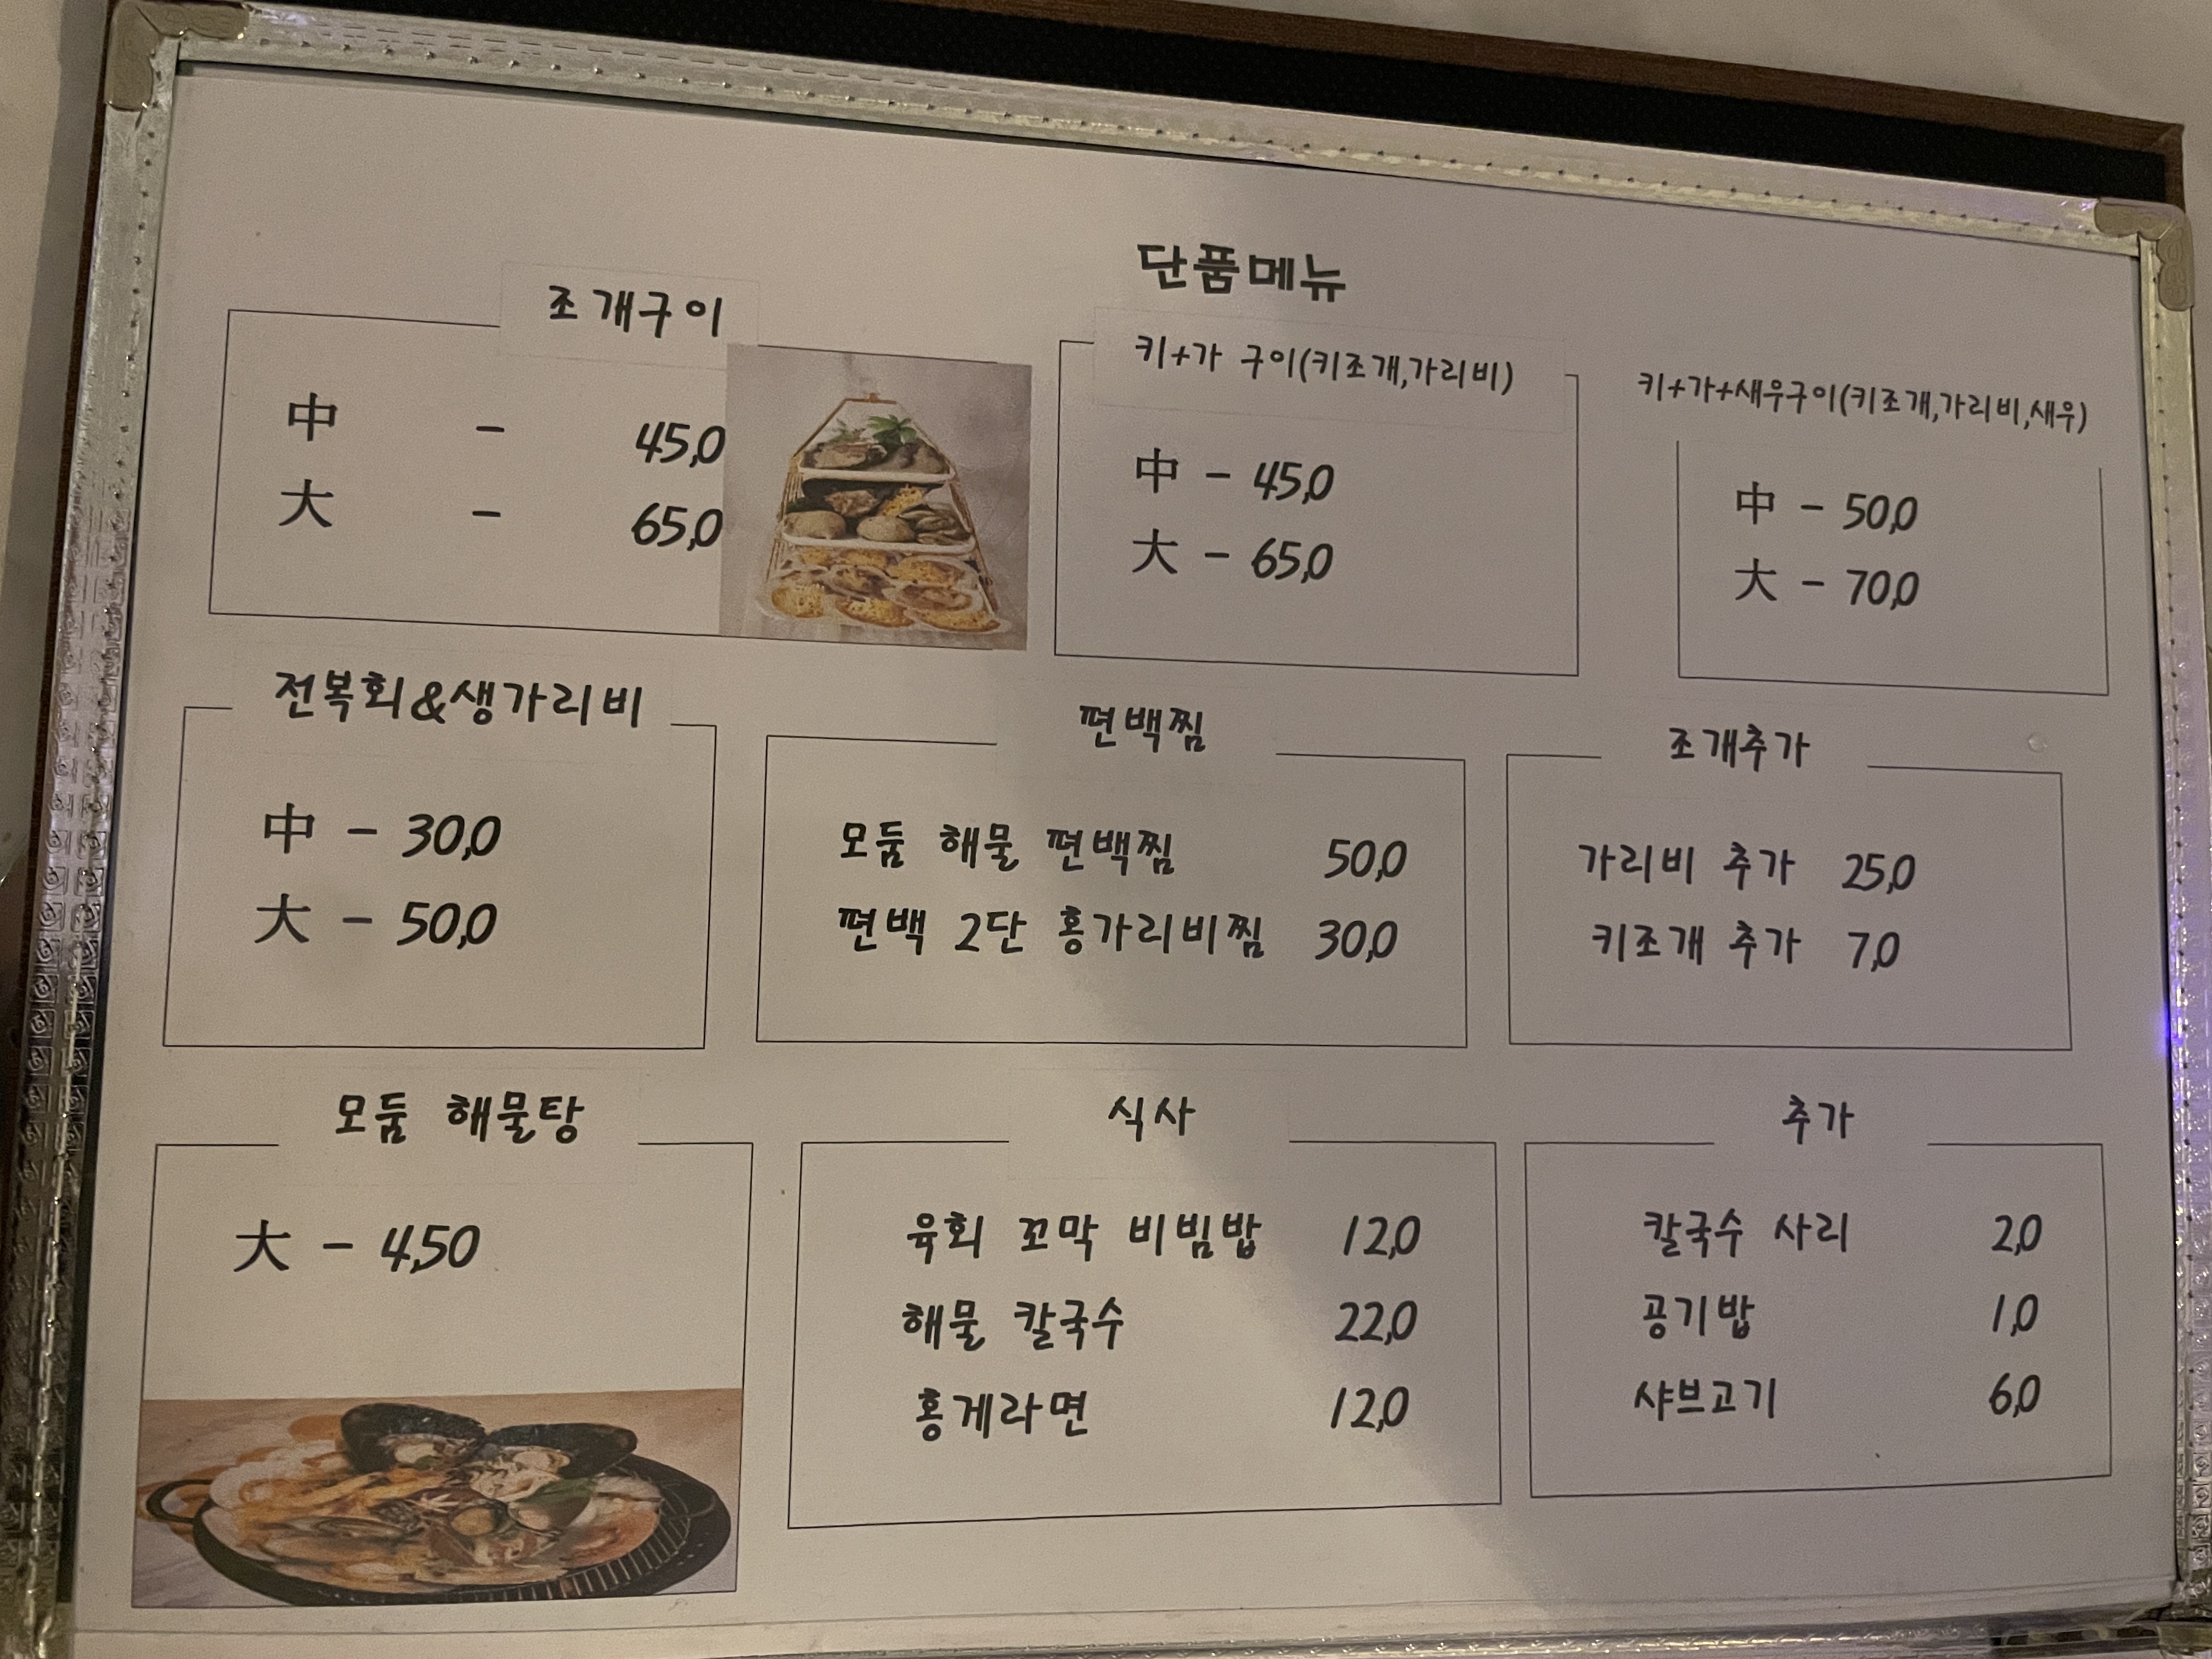 단품메뉴
조개구이
中 - 45,0
大 - 65,0
키+가 구이(키조개,가리비)
中 - 45,0
大 - 65,0
키+가+새우구이(키조개,가리비,새우)
中 - 50,0
大 - 70,0
전복회&생가리비
中 - 30,0
大 - 50,0
편백찜
모둠 해물 편백찜 50,0
편백 2단 홍가리비찜 30,0
조개추가
가리비 추가 25,0
키조개 추가 7,0
모둠 해물탕
大 - 4,50
식사
육회 꼬막 비빔밥 12,0
해물 칼국수 22,0
홍게라면 12,0
추가
칼국수 사리 2,0
공기밥 1,0
샤브고기 6,0